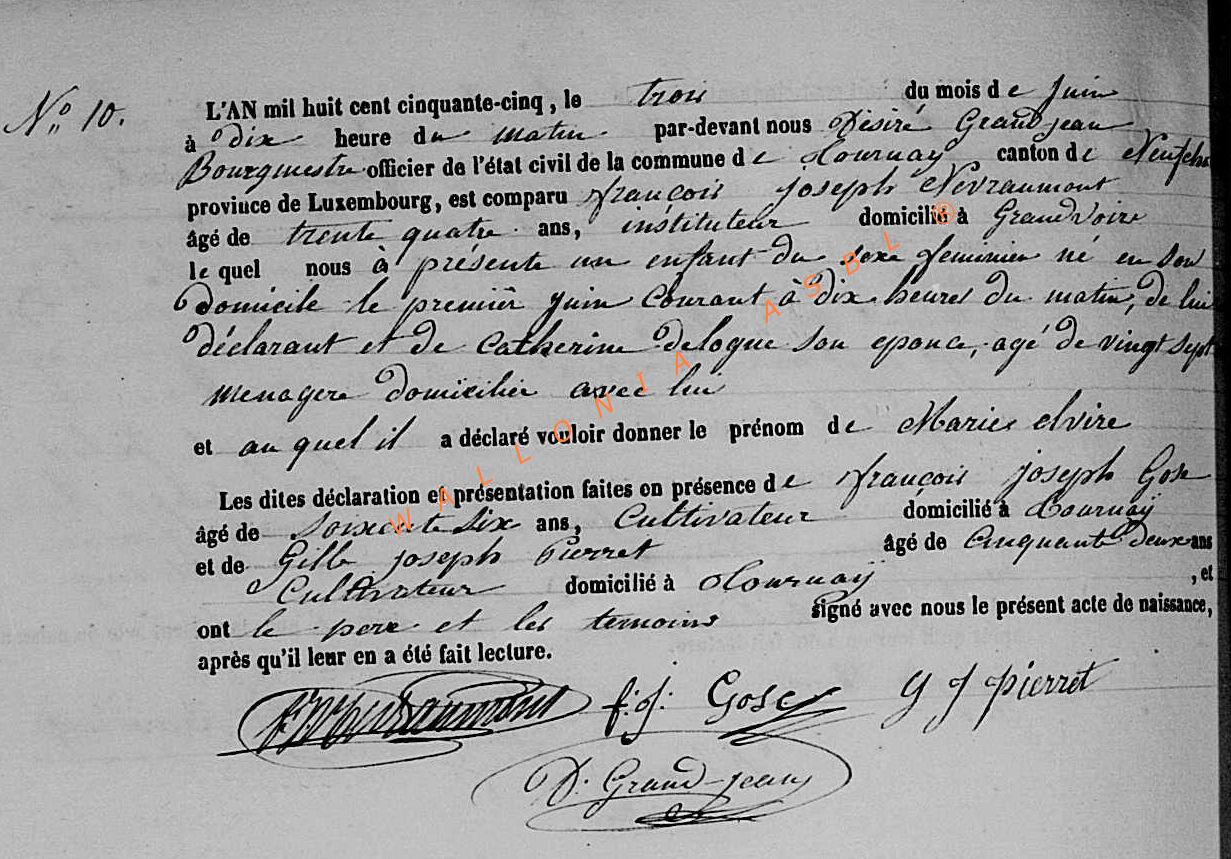 N° 10.
L'AN mil huit cent cinquante-cinq, le trois du mois de juin
à dix heure du matin par-devant nous Désiré Grandjean
Bourgmestre officier de l'état civil de la commune de Tournay, canton de Neufcha
province de Luxembourg, est comparu françois joseph Nevraumont
âgé de trente quatre ans, instituteur domicilié à Grandvoire
le quel nous à présenté un enfant du sexe feminien né en son
domicile le premier juin courant à dix heures du matin, de lui
déclarant et de Catherine delogue son epouce, agé de vingt sept
menagere domicilié avec lui
et au quel il a déclaré vouloir donner le prénom de Marie elvire
Les dites déclaration et présentation faites en présence de françois joseph Gose
âgé de soixante six ans, Cultivateur domicilié à Tournaÿ
et de Gille joseph Pierret âgé de Cinquante deux ans
Cultivateur domicilié à Tournaÿ, et
ont le pere et les temoins signé avec nous le présent acte de naissance,
après qu'il leur en a été fait lecture.
f: j: Gose G J Pierret
D. Grand-jean
WALLONIA ASBL ©